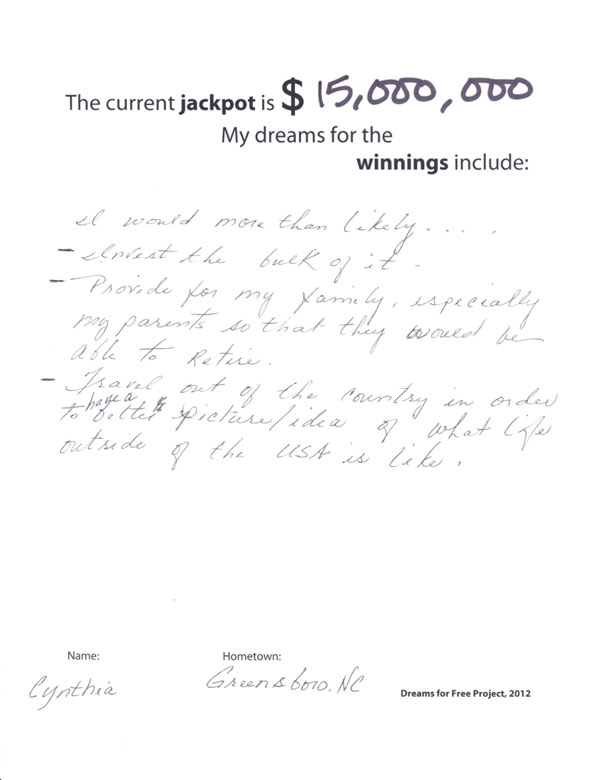 The current jackpot is $ 15,000,000
My dreams for the
winnings include:
I would more than likely....
- Invest the bulk of it.
- Provide for my family, especially
my parents so that they would be
able to retire.
- Travel out of the country in order
to have a better picture/idea of what life
outside of the USA is like.
Name:
Hometown:
Cynthia
Greensboro, NC
Dreams for Free Project, 2012